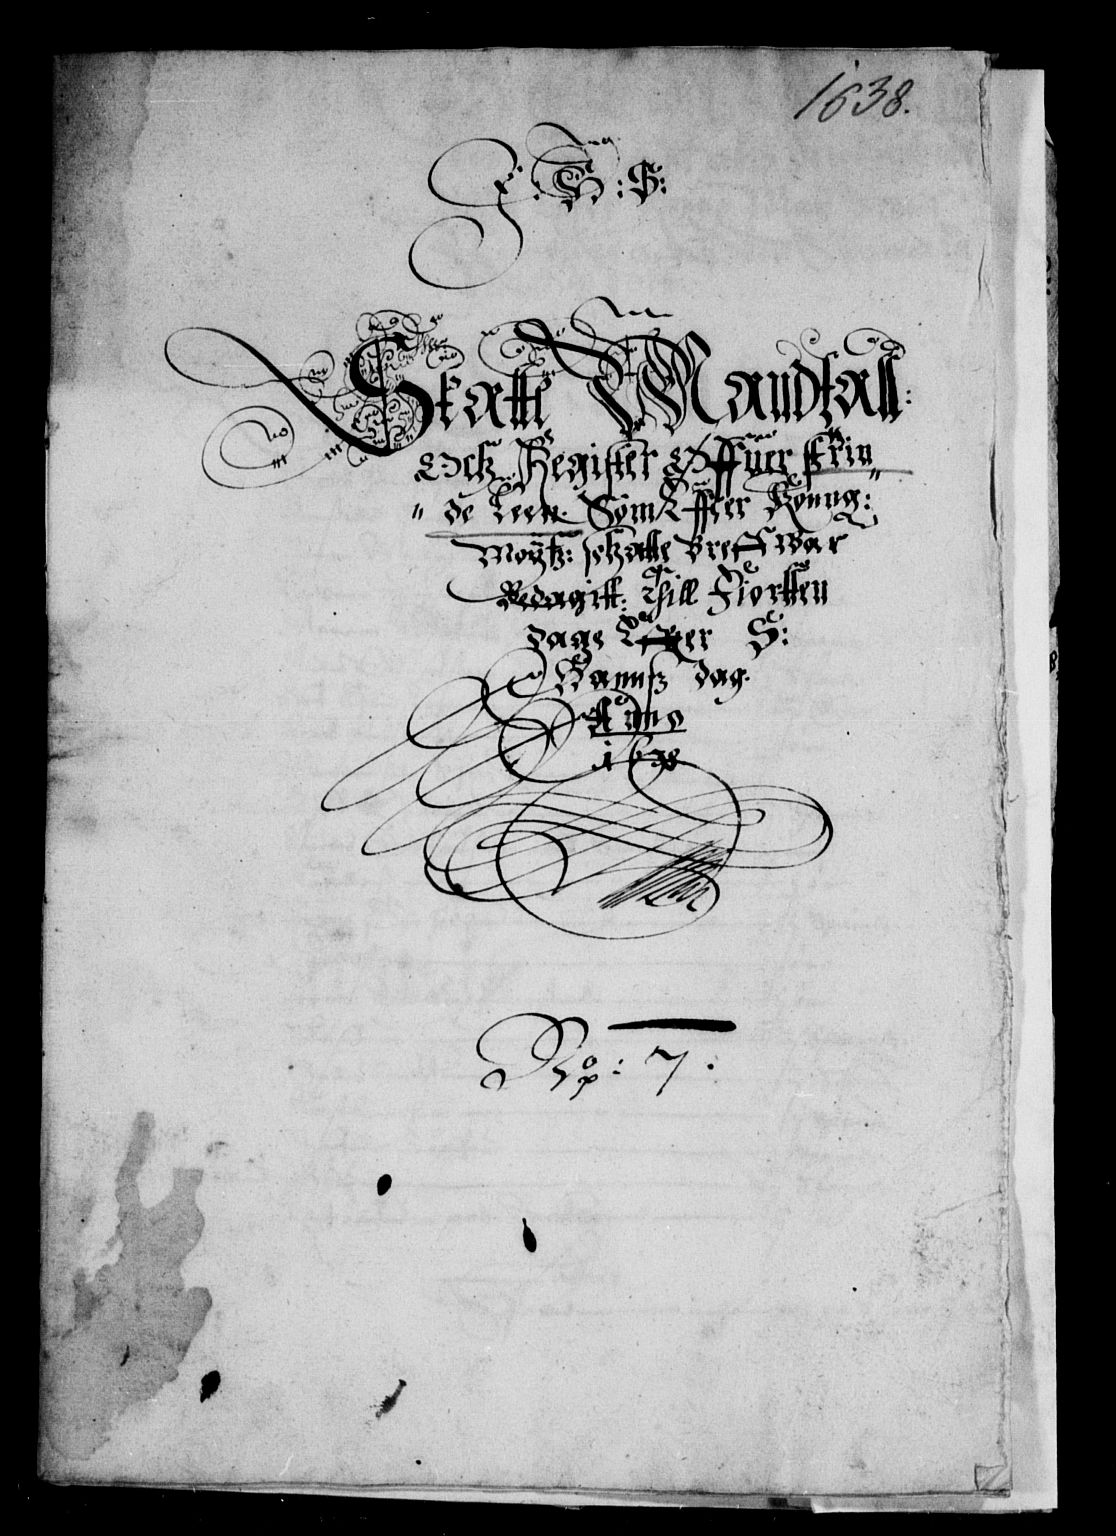 1638.
J. N: S:
Skatte Mandtall:
Och Register Offuer frin
" de Leen Som Effter Konng:
Maytz: schatte breff war
Bedagitt: Till Fiortten
dage Effter S:
Hannsz dag.
Anno
1638
No: 7.